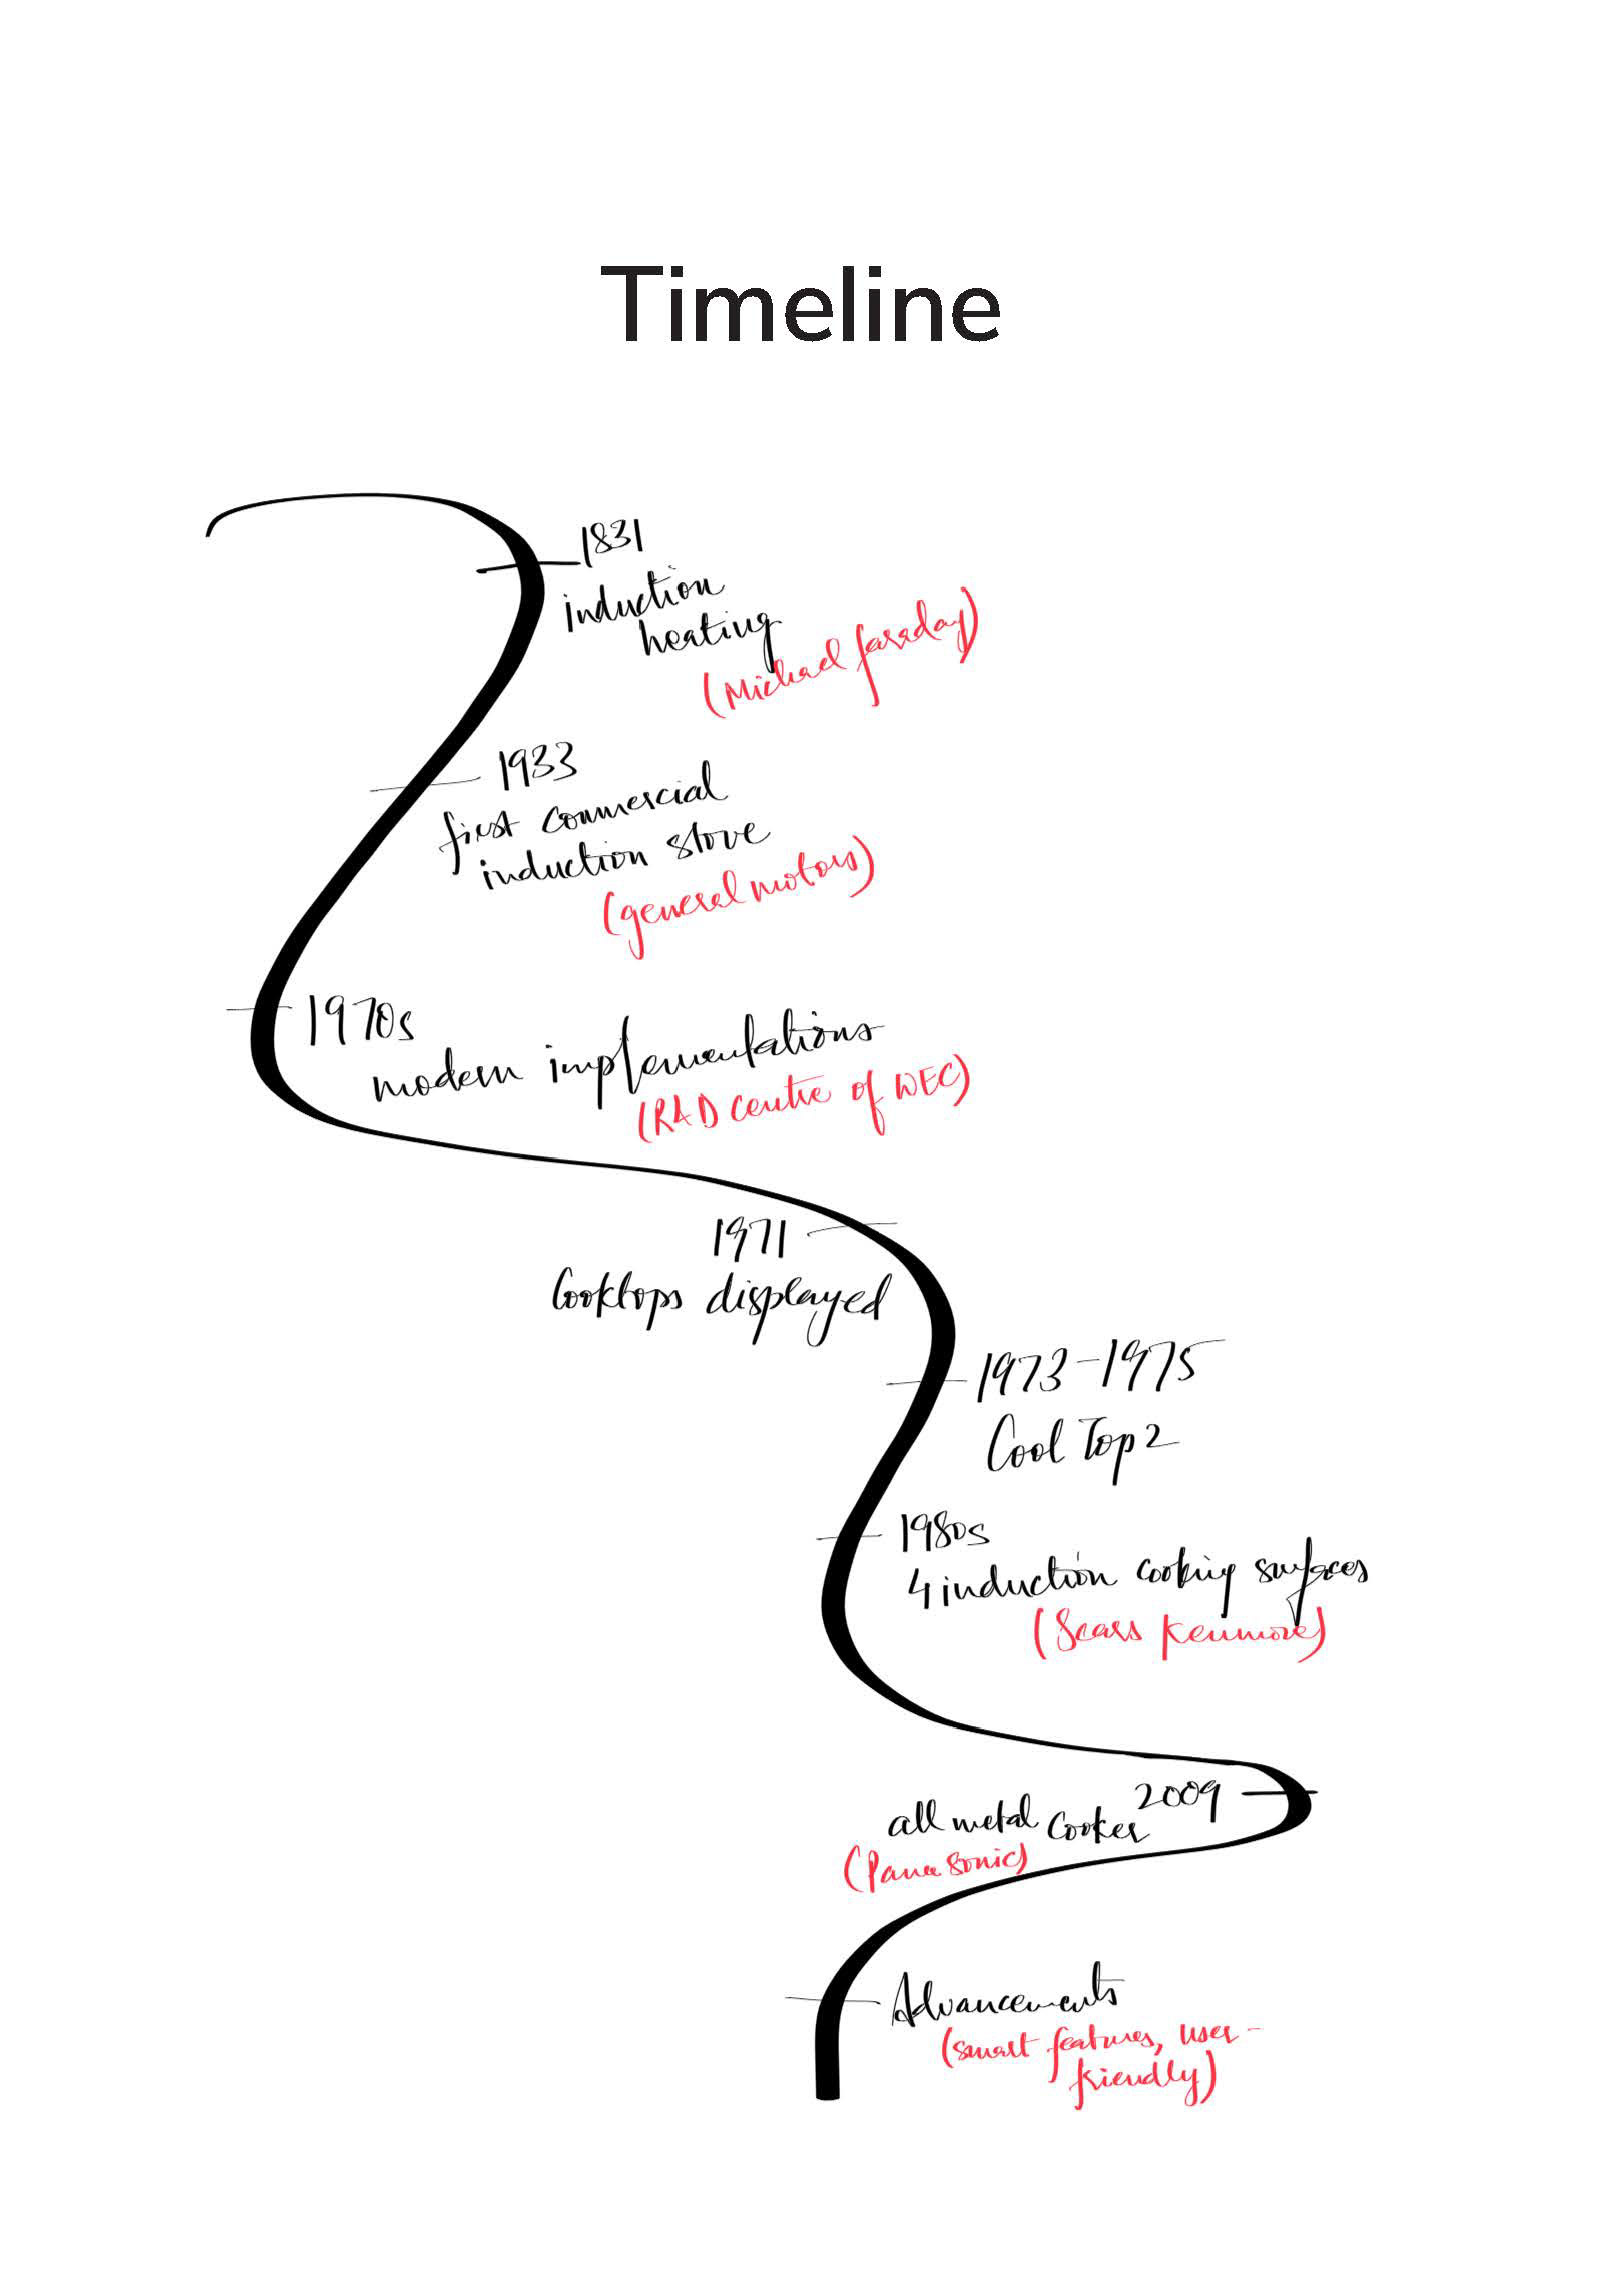 Timeline
1831
induction
heating
(Michael faraday)
1933
first commercial
induction stove
(general motors)
1970s
modern implementations
(R&D centre of WEC)
1971
Cooktops displayed
1973-1975
Cool Top 2
1980s
4 induction cooking surfaces
(Sears Kenmore)
2009
all metal Cooker
(Pana sonic)
Advancements
(smart features, user-
friendly)